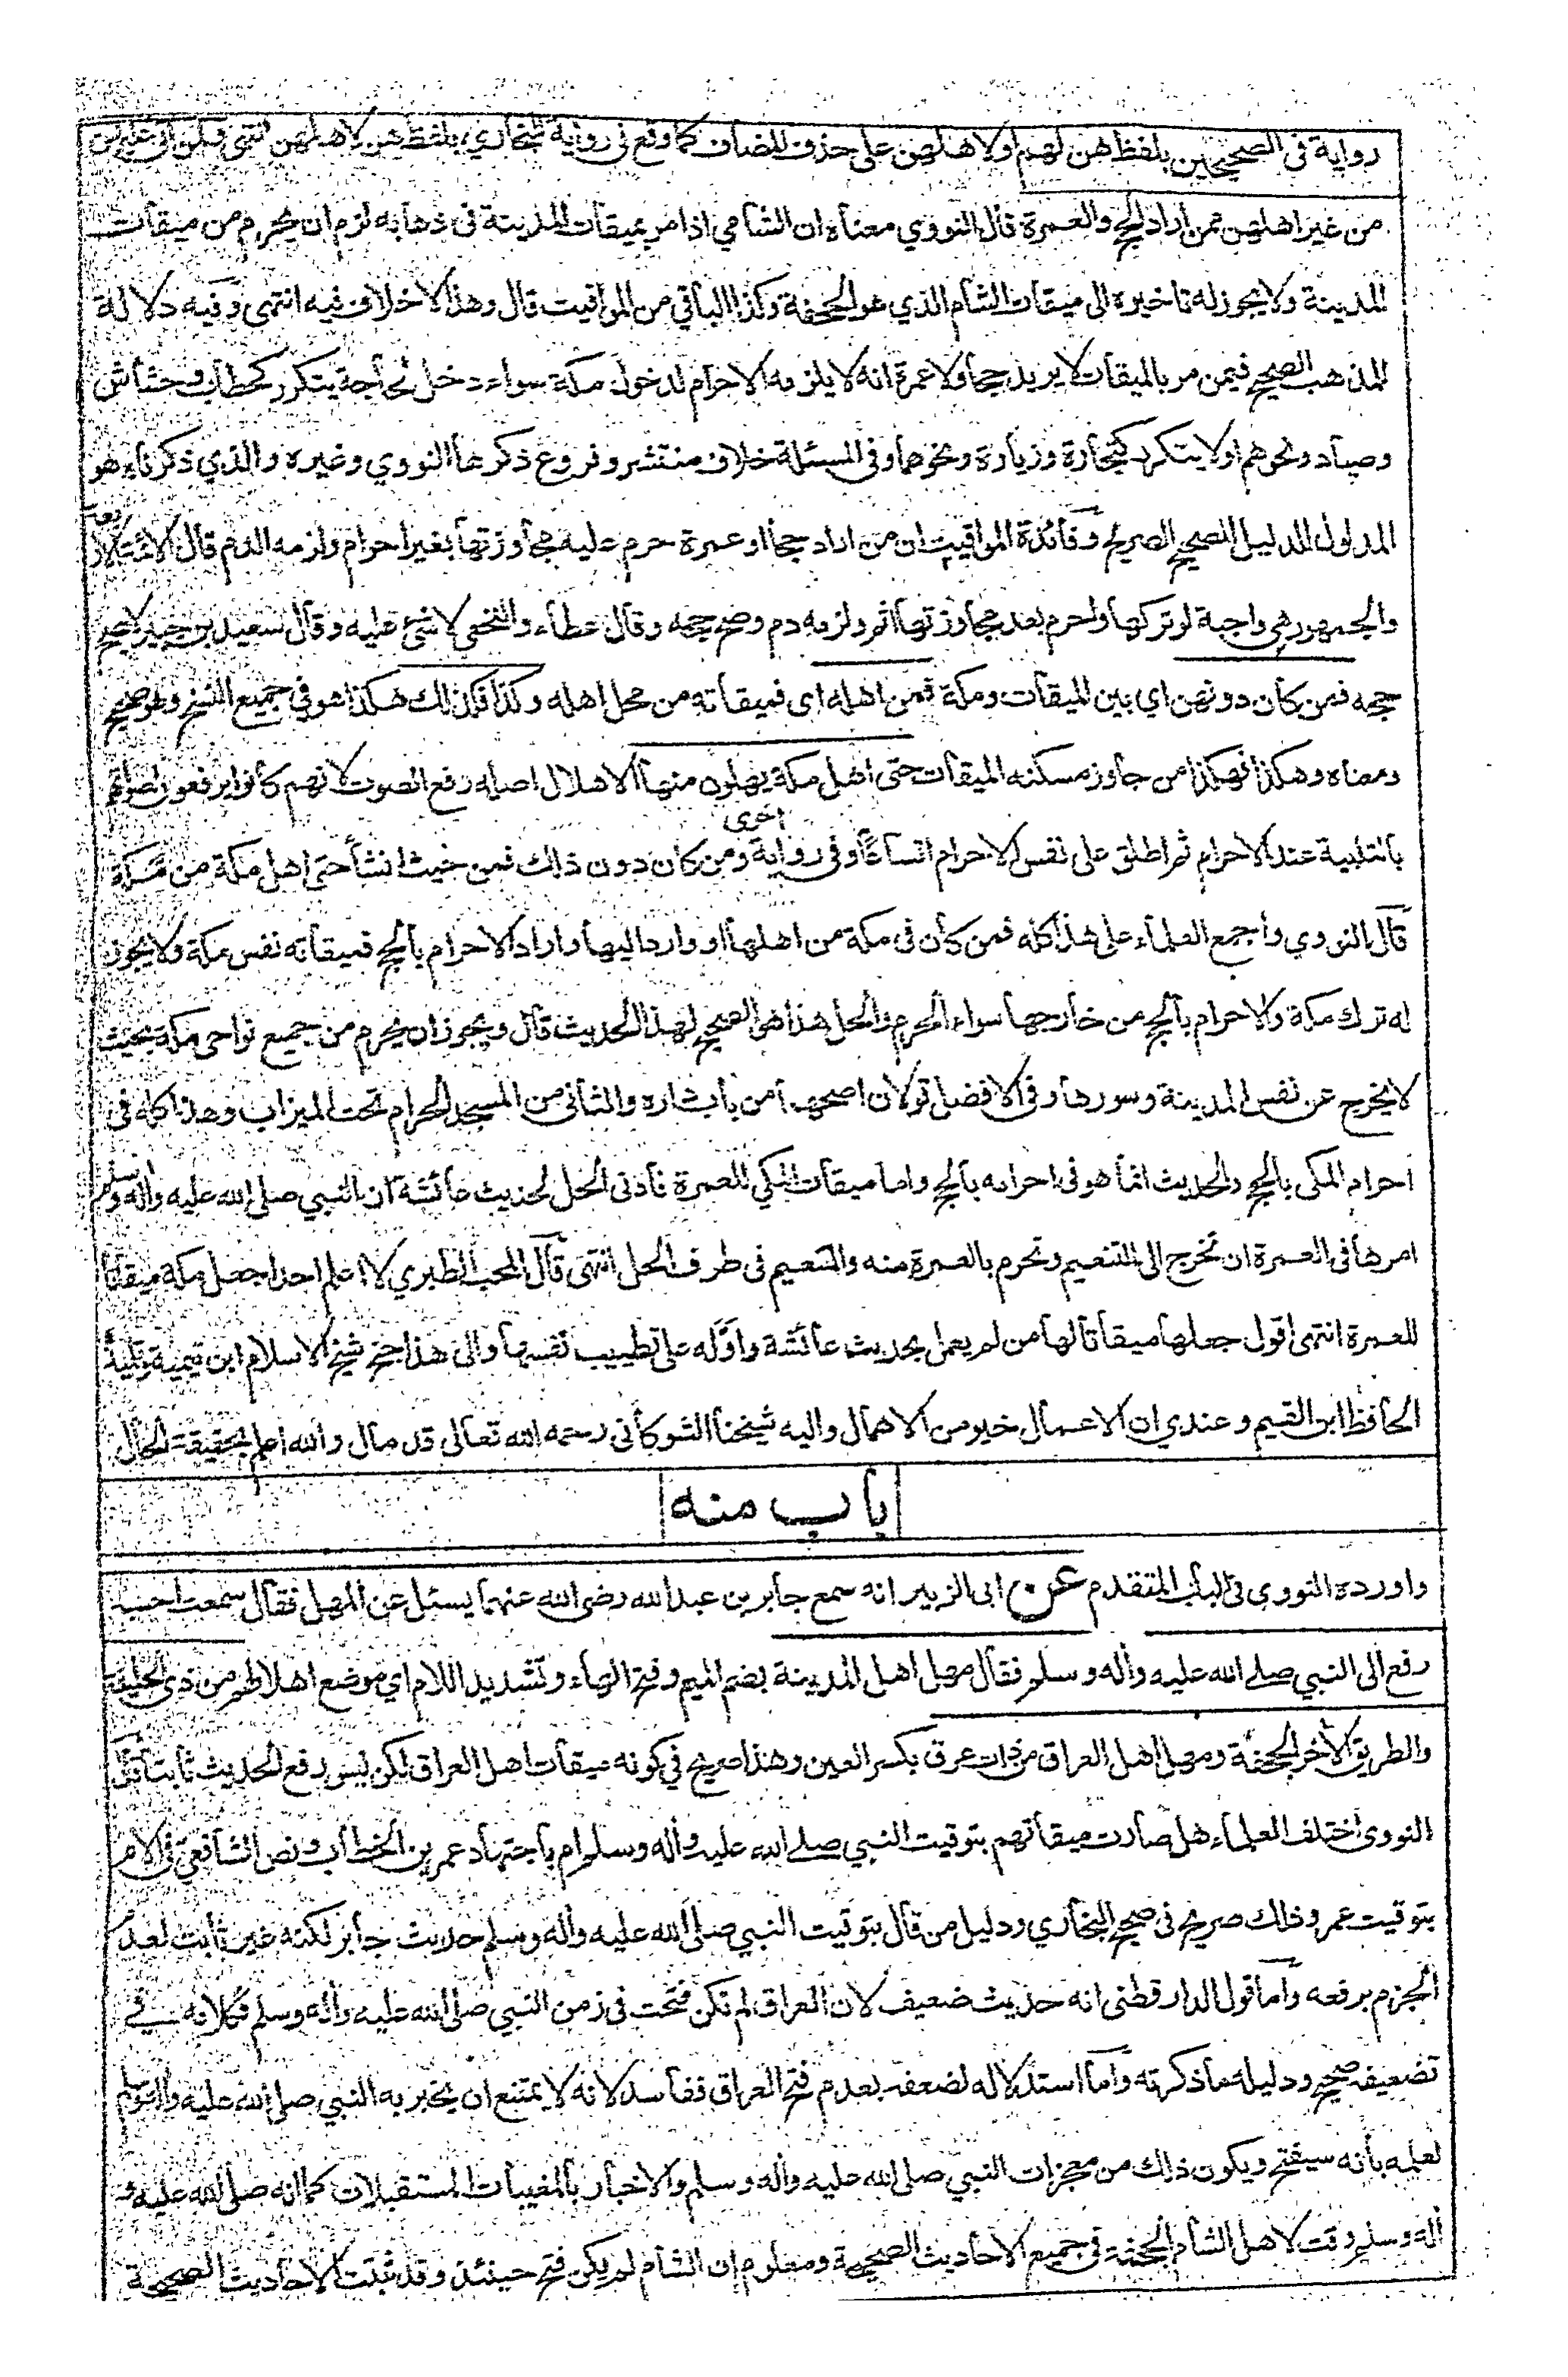 رواية فى الصحيحين بلفظ هن لهم او لاهلهن على حذف المضاف كما وقع فى رواية البخاري بلفظ هن لاهلهن انتهى ولمن اتى عليهن
من غير اهلهن ممن اراد الحج والعمرة قال النووي معناه ان الشامي اذا مر بميقات المدينة فى ذهابه لزم ان يحرم من ميقات
المدينة ولا يجوز له تاخيره الى ميقات الشام الذي هو الجحفة وكذا الباقي من المواقيت قال وهذا لاخلاف فيه انتهى وفيه دلالة
للمذهب الصحيح فيمن مر بالميقات لا يريد حجا ولا عمرة انه لا يلزمه الاحرام لدخول مكة سواء دخل لحاجة يتكرر كحطاب وحشاش
وصياد ونحوهم او لا يتكرر كتجارة وزيارة ونحوهما وفى المسئلة خلاف منتشر وفروع ذكرها النووي وغيره والذي ذكرناه هو
المدلول للدليل الصحيح الصريح وفائدة المواقيت ان من اراد حجا او عمرة حرم عليه مجاوزتها بغير احرام ولزمه الدم قال الائمة الاربعة
والجمهور هي واجبة لو تركها واحرم بعد مجاوزتها اثم ولزمه دم وصح حجه وقال عطاء والنخعي لا شئ عليه وقال سعيد بن جبير لا يصح
حجه فمن كان دونهن اي بين الميقات ومكة فمن اهله اى فميقاته من محل اهله وكذا فكذلك هكذا هو في جميع النسخ وهو صحيح
ومعناه وهكذا فهكذا من جاوز مسكنه الميقات حتى اهل مكة يهلون منها الاهلال اصله رفع الصوت لانهم كانوا يرفعون اصواتهم
بالتلبية عند الاحرام ثم اطلق على نفس الاحرام اتساعا وفى رواية اخرى ومن كان دون ذلك فمن حيث انشأ حتى اهل مكة من مكة
قال النووي واجمع العلماء على هذا كله فمن كان فى مكة من اهلها او واردا اليها واراد الاحرام بالحج فميقاته نفس مكة ولا يجوز
له ترك مكة والاحرام بالحج من خارجها سواء الحرم والحل هذا هو الصحيح لهذا الحديث قال ويجوز ان يحرم من جميع نواحى مكة بحيث
لا يخرج عن نفس المدينة وسورها وفى الافضل قولان اصحهما من باب داره والثانى من المسجد الحرام تحت الميزاب وهذا كله فى
احرام المكى بالحج والحديث انما هو فى احرامه بالحج واما ميقات المكي للعمرة فادنى الحل لحديث عائشة ان النبي صلى الله عليه واله وسلم
امرها فى العمرة ان تخرج الى التنعيم وتحرم بالعمرة منه والتنعيم فى طرف الحل انتهى قال المحب الطبري لا اعلم احدا جعل مكة ميقاتا
للعمرة انتهى اقول جعلها ميقاتا لها من لم يعمل بحديث عائشة واوله على تطييب نفسها والى هذا جنح شيخ الاسلام ابن تيمية وتلميذه
الحافظ ابن القيم وعندي ان الاعمال خير من الاهمال واليه شيخنا الشوكانى رحمه الله تعالى قد مال والله اعلم بحقيقة الحال
باب منه
واورده النووى فى الباب المتقدم عن ابى الزبير انه سمع جابر بن عبد الله رضى الله عنهما يسئل عن المهل فقال سمعت احسبه
رفع الى النبي صلے الله عليه واله وسلم فقال مهل اهل المدينة بضم الميم وفتح الهاء وتشديد اللام اي موضع اهلالهم من ذى الحليفة
والطريق الاخر الجحفة ومهل اهل العراق من ذات عرق بكسر العين وهذا صريح في كونه ميقات اهل العراق لكن ليس رفع الحديث ثابتا قال
النووى اختلف العلماء هل صارت ميقاتهم بتوقيت النبي صلے الله عليه واله وسلم ام باجتهاد عمر بن الخطاب ونص الشافعي فى الام
بتوقيت عمر وذلك صريح فى صحيح البخاري ودليل من قال بتوقيت النبي صلى الله عليه واله وسلم حديث جابر لكنه غير ثابت لعدم
الجزم برفعه واما قول الدارقطنى انه حديث ضعيف لان العراق لم تكن فتحت فى زمن النبي صلى الله عليه واله وسلم فكلامه في
تضعيفه صحيح ودليله ماذكرته واما استدلاله لضعفه بعدم فتح العراق ففاسد لانه لا يمتنع ان يخبر به النبي صلى الله عليه واله وسلم
لعلمه بانه سيفتح ويكون ذلك من معجزات النبي صلى الله عليه واله وسلم والاخبار بالمغيبات المستقبلات كما انه صلى الله عليه و
اله وسلم وقت لاهل الشام الجحفة فى جميع الاحاديث الصحيحة ومعلوم ان الشام لم يكن فتح حينئذ وقد ثبتت الاحاديث الصحيحة